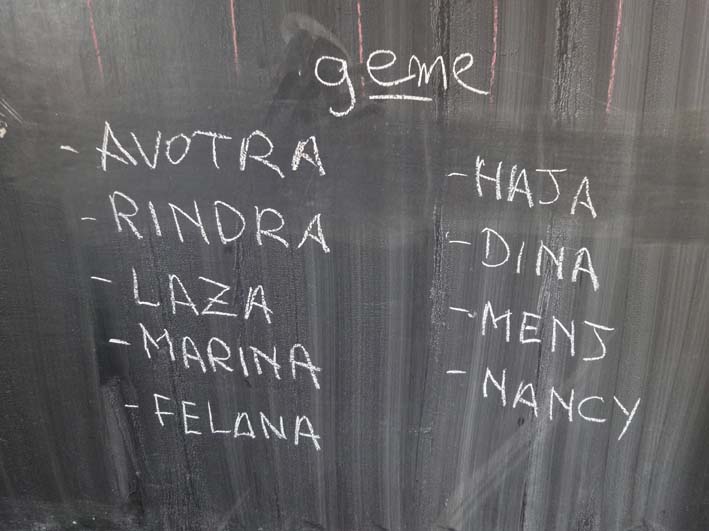 geme
- AVOTRA
- RINDRA
- LAZA
- MARINA
- FELANA
- HAJA
- DINA
- MENJ
- NANCY